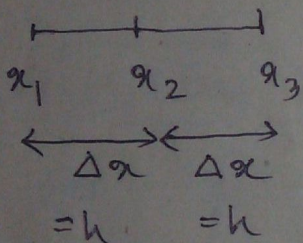 x₁ x₂ x₃
Δx Δx
=h =h